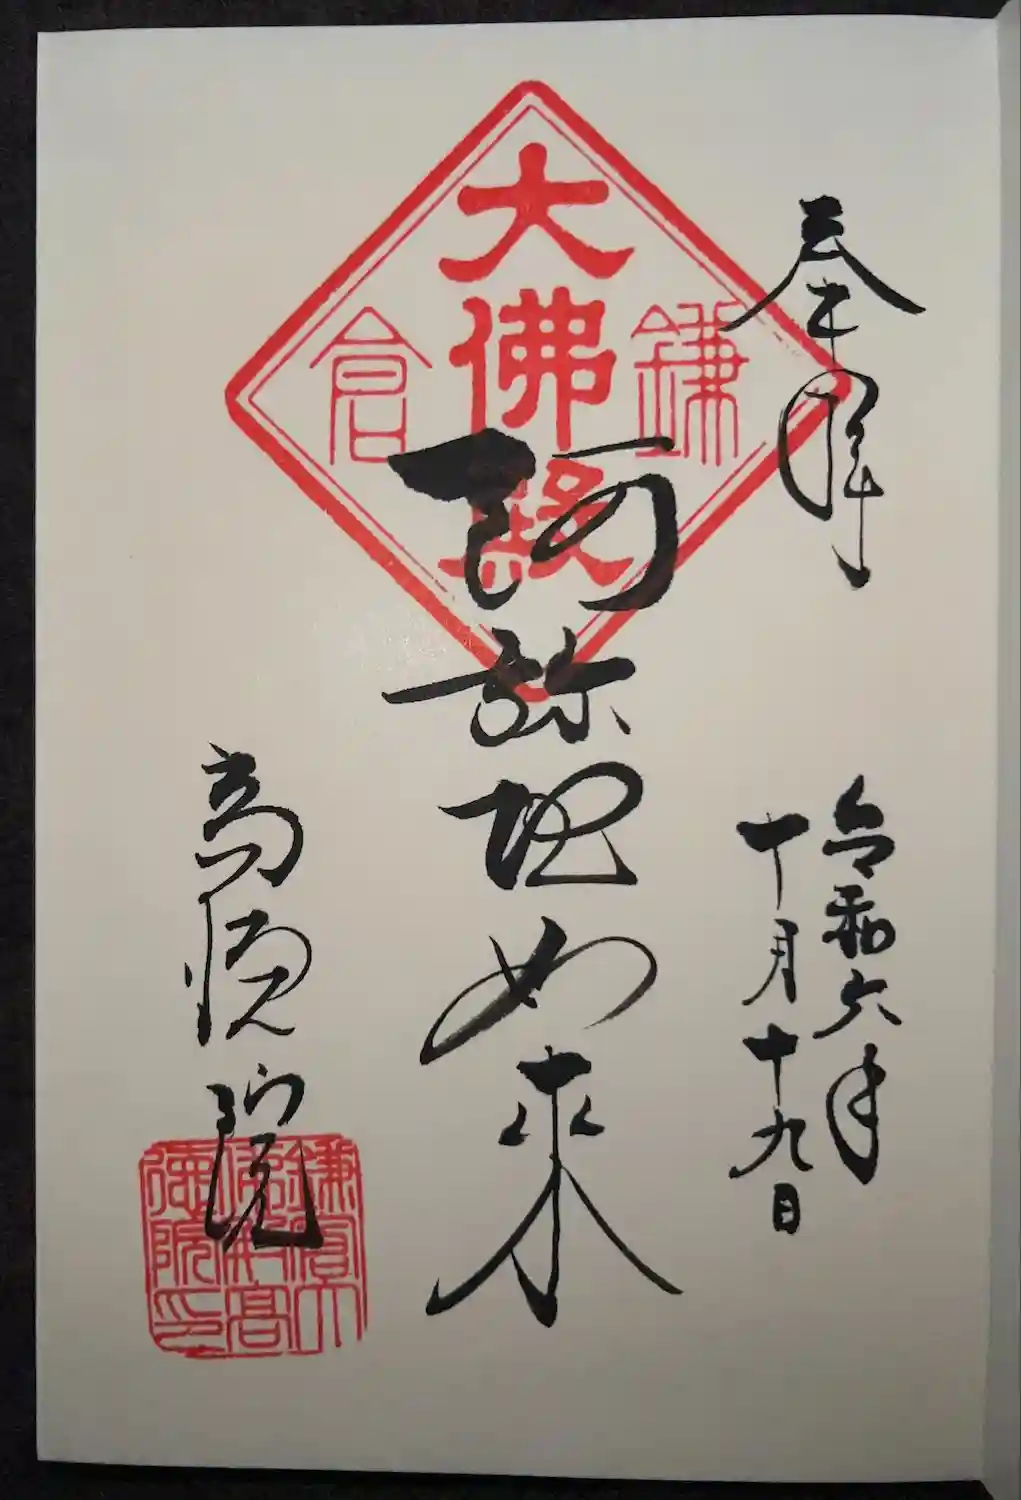 奉拝
令和六年
十月十九日
鎌倉
大佛殿
阿弥陀如来
高徳院
鎌倉大
佛殿高
徳院印